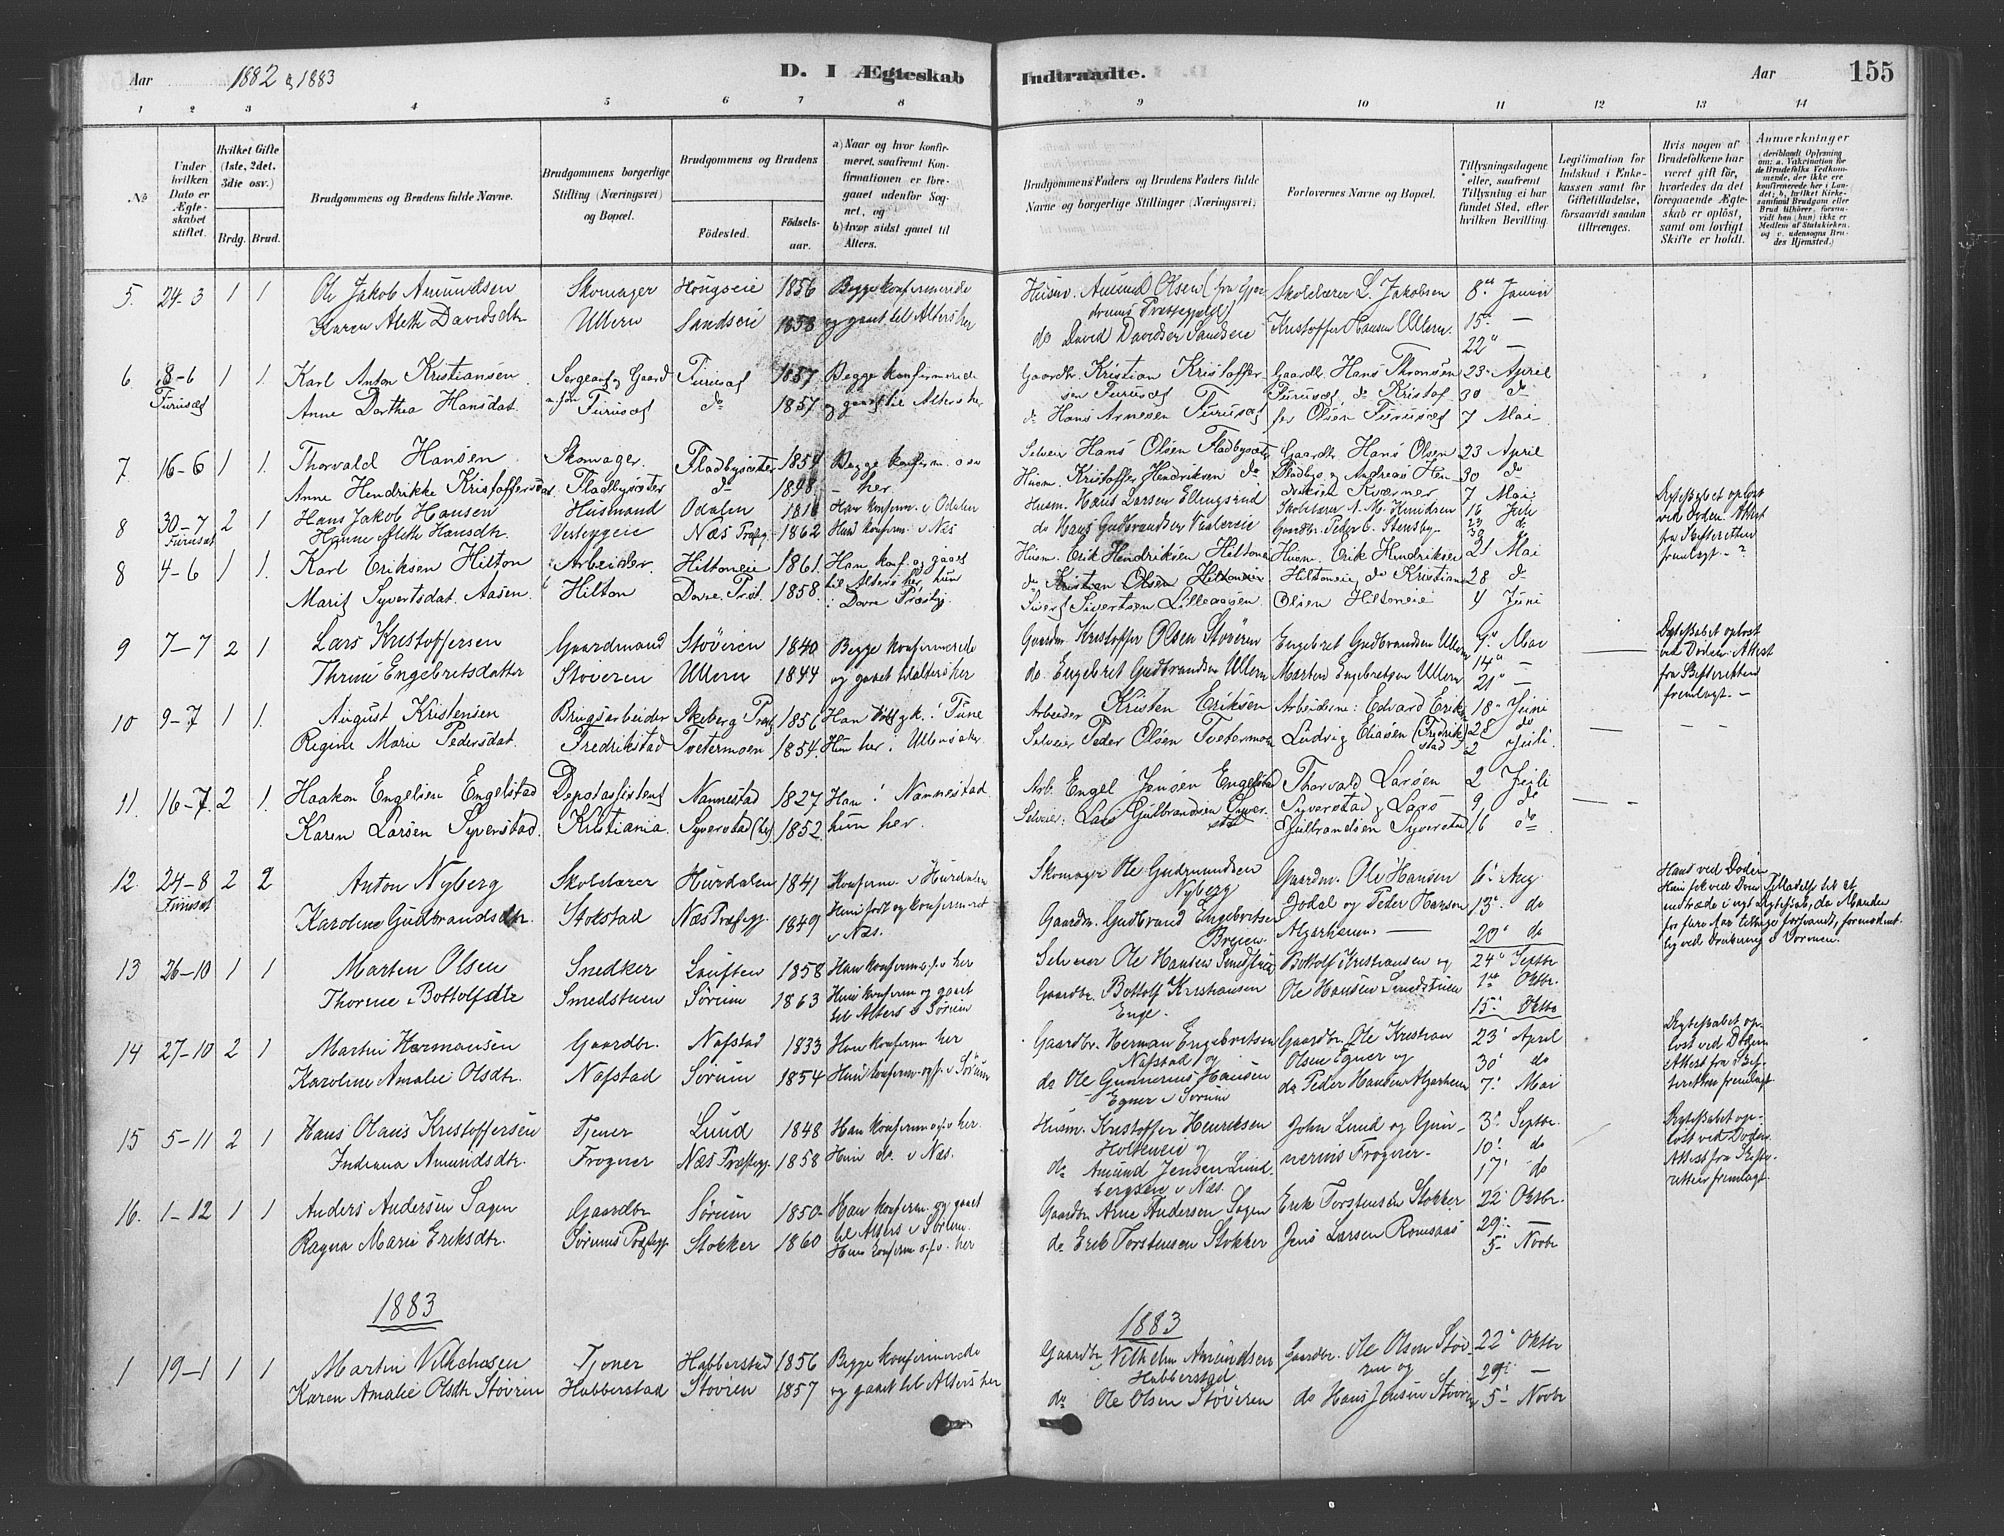 Aar 1882 & 1883
D. I Ægteskab
Indtraadte.
Aar
155
1 2 3 4 5 6 7 8 9 10 11 12 13 14
No
Under hvilken Dato er Ægteskabet stiftet.
Hvilket Gifte (1ste, 2det, 3die osv.)
Brdg.
Brud.
Brudgommens og Brudens fulde Navne.
Brudgommens borgerlige Stilling (Næringsvei) og Bopæl.
Brudgommens og Brudens
Fødested.
Fødselsaar.
a) Naar og hvor konfirmeret, saafremt Konfirmationen er foregaaet udenfor Sognet, og
b) hvor sidst gaaet til Alters.
Brudgommens Faders og Brudens Faders fulde Navne og borgerlige Stillinger (Næringsvei).
Forlovernes Navne og Bopæl.
Tillysningsdagene eller, saafremt Tillysning ei har fundet Sted, efter hvilken Bevilling.
Legitimation for Indskud i Enkekassen samt for Giftetilladelse, forsaavidt saadan tiltrænges.
Hvis nogen af Brudefolkene har været gift før, hvorledes da det foregaaende Ægteskab er opløst, samt om lovligt Skifte er holdt.
Anmærkninger
5 24-3 1 1 Ole Jakob Amundsen Skomager Hougseie 1856 Begge konfirmerede Husm. Amund Olsen Skolelærer L. Jakobsen 8de Januar
Karen Aleth Davidsdtr Ullern Sandseie 1858 og gaaet til Alters her do David Davidsen Sandseie Kristoffer Hansen Ullern 15. —
22" —
6 8-6 1 1. Karl Anton Kristiansen Sergeant og Gaard Furusæt 1857 Begge konfirmerede Gaardbr. Kristian Kristoffer Gaardbr. Hans Thronsen 23 April
Furusæt Anne Dorthea Hansdat. Furusæt do 1857 og gaaet til Alters her sen Furusæt Furusæt, do Kristof 30 do
do Hans Arnesen Furusæt fer Olsen Furusæt 7 Mai
7 16-6 1 1. Thorvald Hansen Skomager. Fladbysæter 1854 Begge konfirm. Selveier Hans Olsen Fladbysæter Gaardbr. Hans Olsen 23 April
Anne Hendrikke Kristoffersdat. Fladbysæter do her. Husm. Kristoffer Hendriksen do Fladbys og Andreas Hen 30 do
8 30-7 2 1 Hans Jakob Hansen Husmand Odalen Han konfirm. i Odalen Husm. Hans Larsen Ellingsrud driksen Kværner 7 Mai
Furusæt Hanne Aleth Hansdtr. Næs Præstg. 1862 Hun konfirm. i Næs do Hans Gudbrandsen Skolelærer A. M. Knudsen 16 Juli
Gaardbr. Peder O. Stensby 23 do
30 do
Ægteskabet opløst ved Døden. Attest fra Skifteretten fremlagt - ?
8 4-6 1 1. Karl Eriksen Hilton Arbeider. Hiltoneie 1861. Han konf. og gaaet Husm. Erik Hendriksen Hilton Husm. Erik Hendriksen 21 Mai
Marit Syvertsdat. Aasen Hilton Dovre Præst. 1858. til Alters her, hun do Kristian Olsen Hiltoneie Hiltoneie, do Kristian 28 do
i Dovre Præstg. Sivert Sivertsen Lilleaasen Olsen Hiltoneie 4 Juni
9 7-7 2 1. Lars Kristoffersen Gaardmand Støveren 1840 Begge konfirmerede Gaardm. Kristoffer Olsen Støveren Engebret Gudbrandsen Ullern 7" Mai
Thrine Engebretsdatter Støveren Ullern 1844 og gaaet til Alters her do Engebret Gudbrandsen Ullern Marten Engebretsen Ullern 14" —
21" —
Ægteskabet opløst ved Døden. Attest fra Skifteretten fremlagt. —
10 9-7 1 1. August Kristensen Brugsarbeider Skeberg Præst 1856 Han i Tune Arbeider Kristen Eriksen Arbeiderne: Edvard Erik 18" Juni
Regine Marie Pedersdat. Fredrikstad Tvetermoen 1854. Hun her. Ullensaker. Selveier Peder Olsen Tvetermoen Ludvig Eliasen (Fredrik 25 do
stad 2 Juli.
11. 16-7 2 1. Haakon Engelsen Engelstad Depotassistent Nannestad 1827 Han i Nannestad Arb. Engel Jensen Engelstad Thorvald Larsen 2 Juli
Karen Larsen Syverstad. Kristiania Syverstad (her) 1852. hun her. Selveier: Lars Gulbrandsen Syver Syverstad og Lars 9 do
stad Gulbrandsen Syverstad 16 do
12. 24-8 2 2 Anton Nyberg Skolelærer Hurdalen 1841 Konfirm. i Hurdalen Skomager Ole Gudmundsen Gaardm. Ole Hansen 6' Aug
Furusæt Nyberg
Karoline Gudbrandsdtr. Stokstad Næs Præstgj. 1849 Hun født og konfirmeret Gaardm. Gudbrand Engebretsen Jodal og Peder Hansen 13' do
i Næs. Algarheim. — 20' do
Hans ved Døden
Hun fik ved Dom Tilladelse til at indtræde i nyt Ægteskab, da Manden for flere Aar tilbage forsvandt, formodentlig ved drukning i Vormen.
13 26-10 1 1 Martin Olsen Snedker 1858 Han konfirm. o.f.v. her Selveier Ole Hansen Smedstuen Bottolf Kristiansen og 24' Septbr
Thorine Bottolfsdtr Smedstuen Sørum 1863 Hun konfirm og gaaet Gaardbr. Bottolf Kristiansen Ole Hansen Smedstuen 1ste Oktbr.
til Alters i Sørum Enge. 15' Oktbr
14 27-10 2 1 Martin Hermansen Gaardbr. Nafstad 1833 Han konfirm her Gaardbr. Herman Engebretsen Gaardbr. Ole Kristian 23' April
Nafstad og Olsen Egner og 30' do
Karoline Amalie Olsdtr. Nafstad Sørum 1854 Hun konfirm. og f. i Sørum do Ole Gunnerius Hansen do Peder Hansen Algarheim 7' Mai
Egner i Sørum
Ægteskabet opløst ved Døden Attest fra Skifteretten fremlagt
15 5-11 2 1 Hans Olaus Kristoffersen Tjener Lund 1848 Han konfirm. o.f.v. her. Husm. Kristoffer Henriksen John Lund og Gun- 3' Septbr.
Holkneie og
Indiana Amundsdtr. Frogner Næs Præstegj. 1858 Hun do. i Næs. do Amund Jensen Lund nerius Frogner- 10' do
bergseie i Næs. 17' do
Ægteskabet opløst ved Døden. Attest fra Skifteretten fremlagt
16. 1-12 1 1 Anders Andersen Sagen Gaardbr Sørum 1850 Han konfirm. og gaaet Gaardbr Arne Andersen Sagen Erik Torstensen Stokker 22' Oktbr.
til Alters i Sørum. 29' —
Ragna Marie Eriksdtr. Sørums Præstgj. Stokker 1860 Hun konfirm o.f.v. her do Erik Torstensen Stokker Jens Larsen Romsaas 5' Novbr
1883
1883
1 19-1 1 1 Martin Vilhelmsen Tjener Habberstad 1856 Begge konfirmerede Gaardbr Vilhelm Amundsen Gaardbr. Ole Olsen Støv 22' Oktbr
Habberstad ren og 29' —
Karen Amalie Olsdtr Støvren Habberstad Støvren 1857 og gaaet til Alters her do Ole Olsen Støveren do Hans Jensen Støvren 5' Novbr